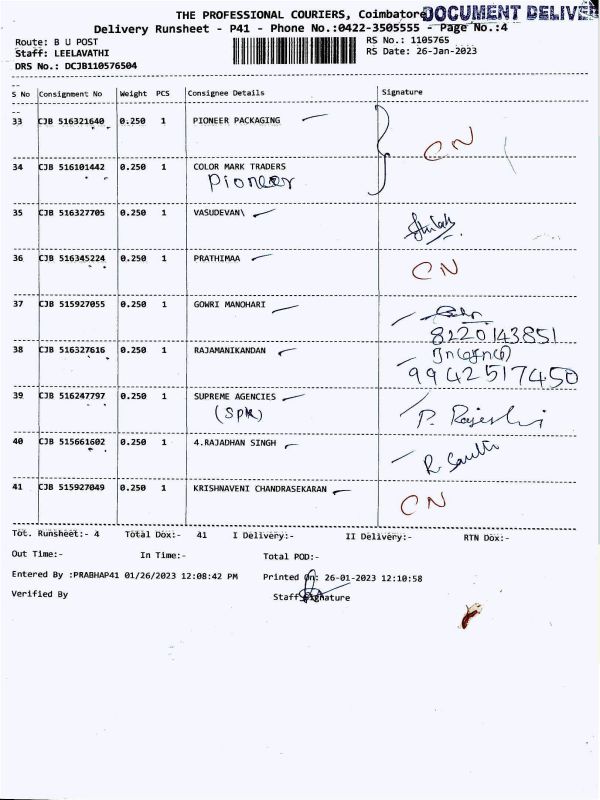 THE PROFESSIONAL COURIERS, Coimbatore DOCUMENT DELIVER
Delivery Runsheet - P41 - Phone No.:0422-3505555 - Page No.:4
Route: B U POST RS No.: 1105765
Staff: LEELAVATHI RS Date: 26-Jan-2023
DRS No.: DCJB110576504
S No Consignment No Weight PCS Consignee Details Signature
33 CJB 516321640 0.250 1 PIONEER PACKAGING
CN
34 CJB 516101442 0.250 1 COLOR MARK TRADERS
Pioneer
35 CJB 516327705 0.250 1 VASUDEVAN\
36 CJB 516345224 0.250 1 PRATHIMAA
CN
37 CJB 515927055 0.250 1 GOWRI MANOHARI
8220143851
38 CJB 516327616 0.250 1 RAJAMANIKANDAN
9942517450
39 CJB 516247797 0.250 1 SUPREME AGENCIES
(SPK) P. Rajeshi
40 CJB 515661602 0.250 1 4.RAJADHAN SINGH
41 CJB 515927049 0.250 1 KRISHNAVENI CHANDRASEKARAN
CN
Tot. Runsheet:- 4 Total Dox:- 41 I Delivery:- II Delivery:- RTN Dox:-
Out Time:- In Time:- Total POD:-
Entered By :PRABHAP41 01/26/2023 12:08:42 PM Printed On: 26-01-2023 12:10:58
Verified By Staff Signature